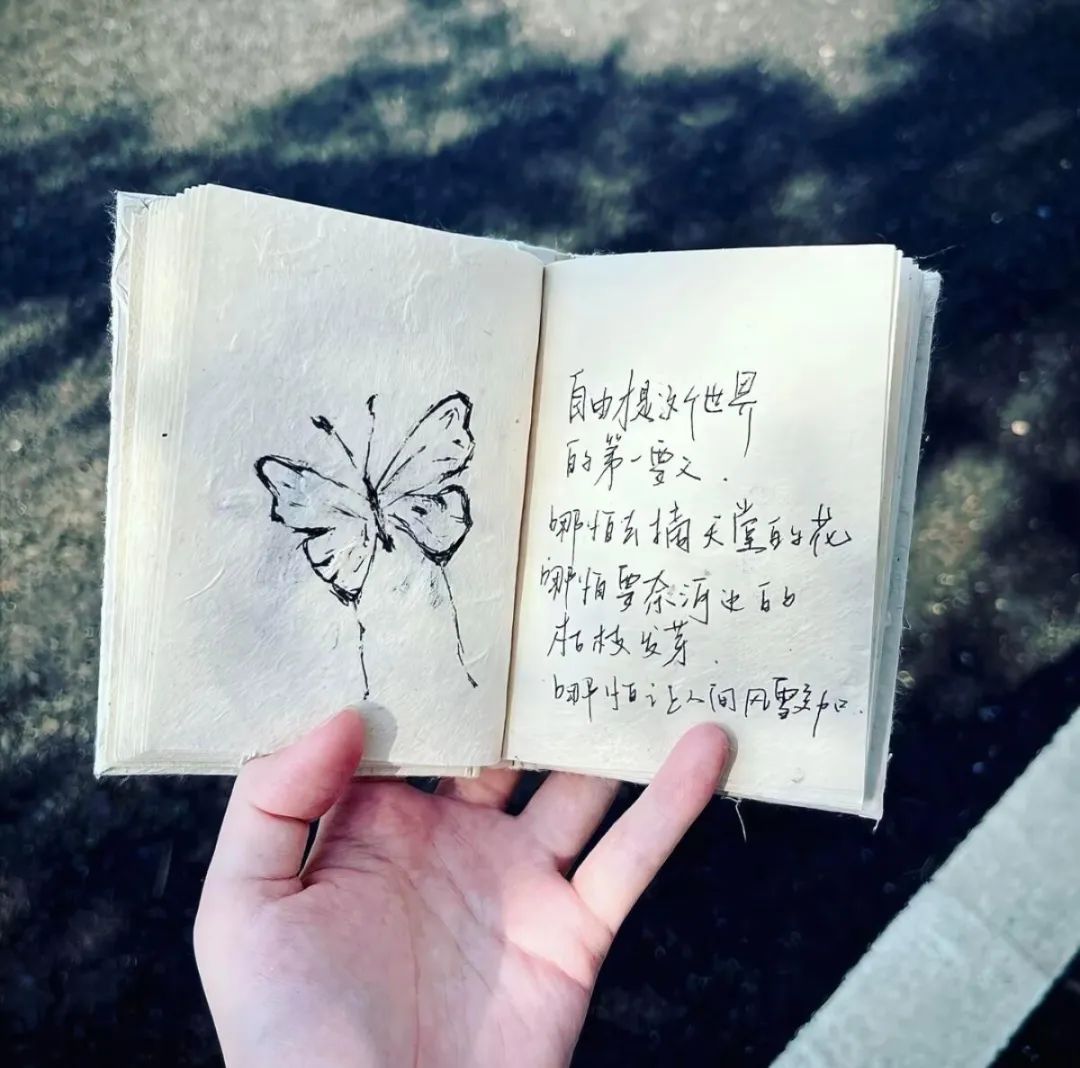 自由是这个世界
的第一要义.
哪怕去摘天堂的花
哪怕要奈河边的
枯枝发芽.
哪怕让人间风雪交加.